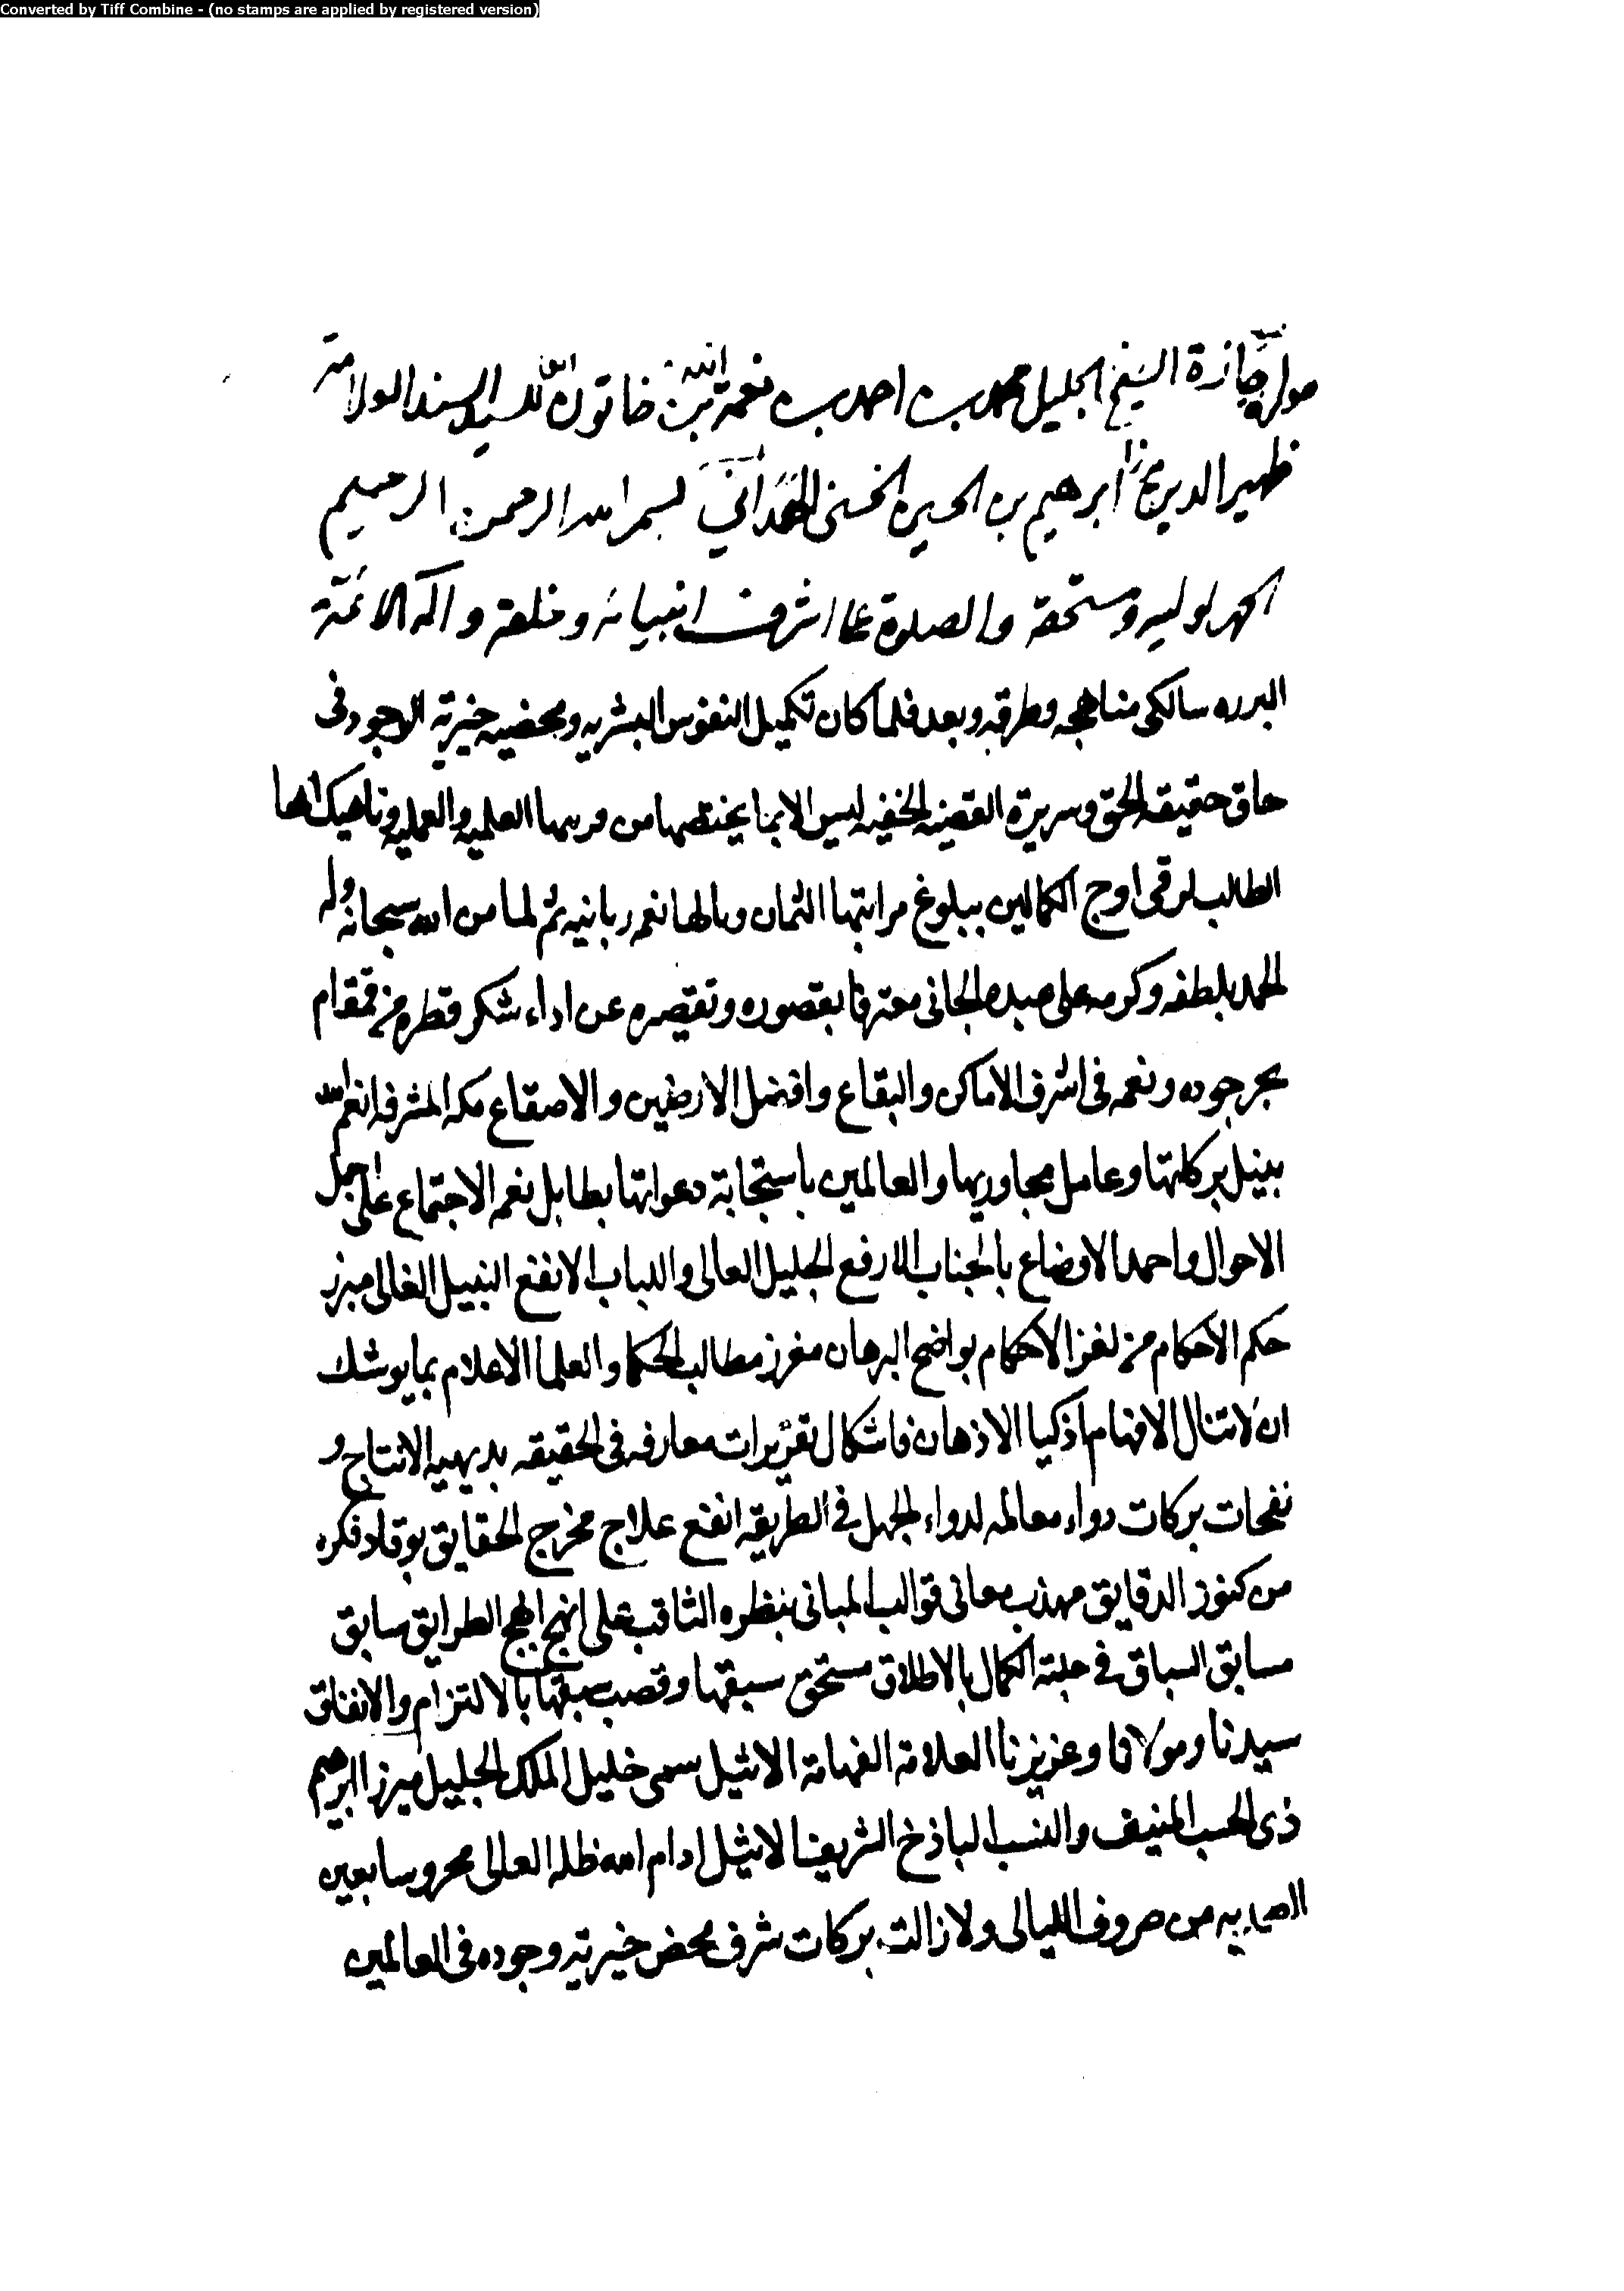 Converted by Tiff Combine - (no stamps are applied by registered version)
صورة اجازة الشيخ الجليل محمد بن احمد بن نعمة الله بن خاتون للسيد السند العلامة
ظهير الدين ميرزا ابرهيم بن الحسين الحسنى الهمدانى بسم الله الرحمن الرحيم
الحمد لوليه ومستحقه والصلوة على اشرف انبيائه وخلقه واله الائمة
البرره سالكى مناهجه وطرقه وبعد فلما كان تكميل النفوس البشريه ومحضيه خيرية الوجود فى
حاق حقيقه الحق وسريرة القضيه الخفيه ليس الا بما يختصها من العلميه والعمليه وناهيك
الطالب لرقى اوج الكمالين ببلوغ مراتبها الثمان ربانيه ثم لما من الله سبحانه وله
الحمد بلطفه وكرمه على عبده الجانى معترفا بقصوره وتقصيره عن اداء شكر قطره من قمقام
بحر جوده ونعمه فى اشرف الاماكن والبقاع وافضل الارضين والاصقاع مكه المشرفه انعم الله
بنيل بركاتها وعامل مجاوريها والعالمين باستجابة دعواتها نعم الاجتماع على اجمل
الاحوال واحمد الاوضاع بالجناب الارفع الجليل العالى واللباب الانفع النبيل الغالى مبرز
حكم الاحكام من لغز الاحكام بواضح البرهان مغرز مطالب الحكما والعلما الاعلام بما يوشك
ان لا تنال الافهام اذكيا الاذهان فاشكال تقريرات معارفه فى الحقيقه بديهيه الانتاج و
نفحات بركات دواء معالمه لدواء الجهل فى الطريقه انفع علاج مخرج الحقايق بوقاد فكره
من كنوز الدقايق مهذب معانى قوالب المبانى بنظره الثاقب على انهج الطرايق سابق
مسابق السباق فى حلبته الكمال بالاطلاق مستحق سبقها وقصب سبقها بالالتزام والاتفاق
سيدنا ومولانا وعزيزنا العلامه الفهامة الاثيل سمى خليل الملك الجليل ميرزا ابرهيم
ذى الحسب المنيف والنسب الباذخ الشريف الاثيل ادام الله ظله العالى محروسا بعين
من صروف الليالى ولا زالت بركات شرف محض خيرية وجوده فى العالمين